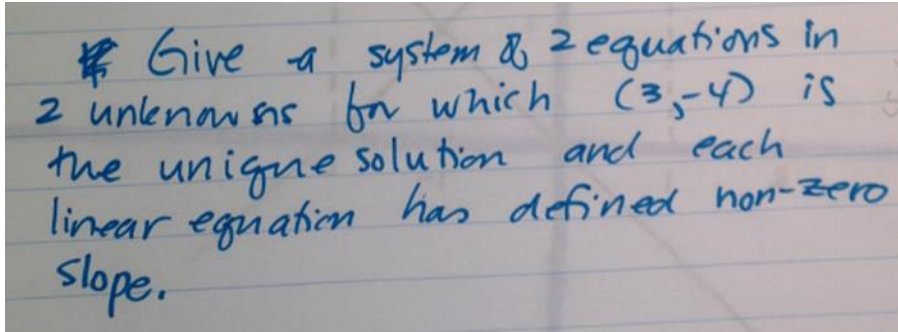 Give a system of 2 equations in
2 unknowns for which (3,-4) is
the unique solution and each
linear equation has defined non-zero
slope.